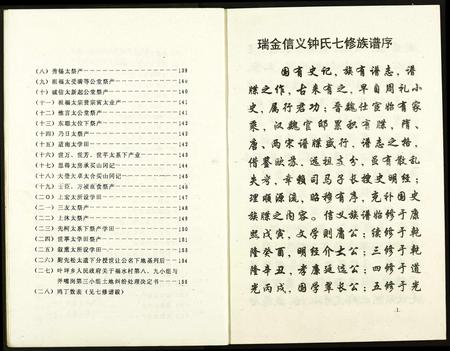 （八）秀锡太祭产 139
（九）祖福太受满等公堂祭产 140
（十）诚信太新起公堂祭产 140
（十一）祖福太宗贤宗寅太业产 140
（十二）惟言太公堂祭产 141
（十三）东聪太位下祭产 143
（十四）乃日太祭产 143
（十五）道南太学田 143
（十六）世万、世芳、世芊太系下产业 143
（十七）思尊太房承买山同记 144
（十八）大登太卓太合买山同记 145
（十九）士臣、万祯在查祭产 146
（二〇）上宏太所设学田 147
（二一）三友太祭产 148
（二二）上沐太祭产 149
（二三）先柯太系下祭产学田 150
（二四）世季太学田祭产 151
（二五）叙重太所设学田 153
（二六）附先松太遗下分授放让公名下地基列后 154
（二七）叶坪乡人民政府关于福水村第八、九小组与
井嘴岗第三小组土地纠纷处理决定书 155
（二八）鸿丁数表（见七修谱跋）
瑞金信义钟氏七修族谱序
国有史记，族有谱志，谱
牒之作，古来有之，早自周礼小
史，属行君功；晋魏仕宦始有家
乘，汉魏官邸累积有牒，隋、
唐、两宋谱牒咸行，谱志之格，
借鉴欧苏，远祖支分，虽有散乱
失考，幸赖司马子长搜史明经；
理顺源流，昭穆有序，充补国史
族牒之内容。信义族谱始修于康
熙戊寅，文学则庸公；续修于乾
隆癸酉，明经介士公；三修于乾
隆辛丑，孝廉延远公；四修于道
光丙戌，国学翠长公；五修于光
.1.